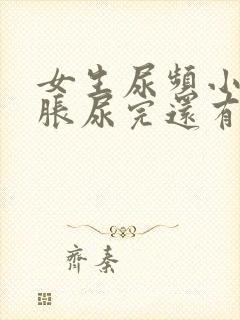 女生尿頻小
脹尿完還有
齊秦